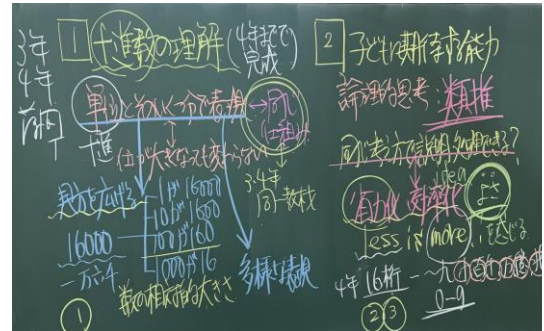 3年
4年
1 十進数の理解 (4年までで完成)
単位とそのいくつ分で表現 → 同じ仕組み
位が大きくなっても変わらない
3.4年
同一教材
見方を広げる
1が16000
10が1600
100が160
1000が16
16000
一万六千
数の相対的大きさ
多様な表現
①
2 子どもに期待する能力
論理的思考:類推
同じ考え方で説明、処理できる?
idea
よさ
Less is more を感じる
4年 16桁
0-9
②③